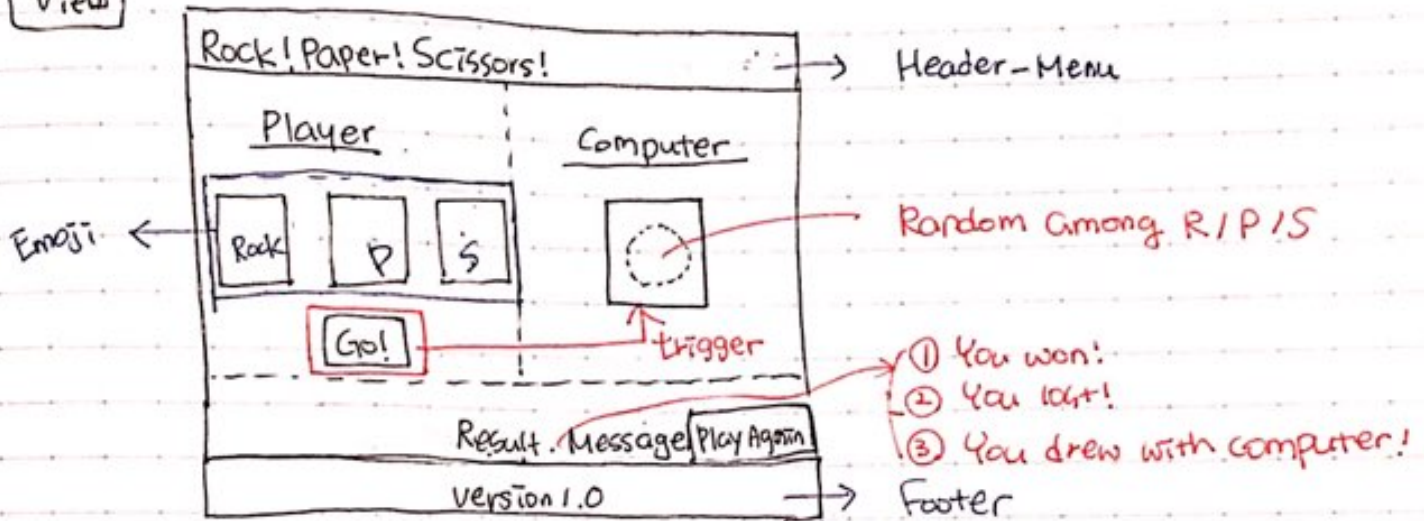 View
Rock! Paper! Scissors!
Header-Menu
Player
Computer
Emoji
Rock
P
S
Random among R/P/S
Go!
trigger
① You won!
② You lost!
③ You drew with computer!
Result. Message
Play Again
Version 1.0
Footer